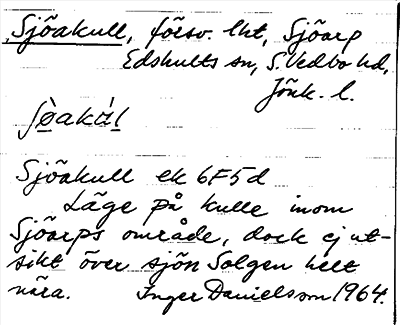 Sjöakull, försv. lht, Sjöarp
Edshults sn, S. Vedbo hd,
Jönk. l.
ʃø̀akúl
Sjöakull ek 6F5d
Läge på kulle inom
Sjöarps område, dock ej ut-
sikt över sjön Solgen helt
nära. Inger Danielsson 1964.